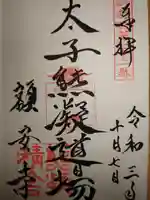 奉拝
令和三年
十月七日
太子熊凝道場
額安寺